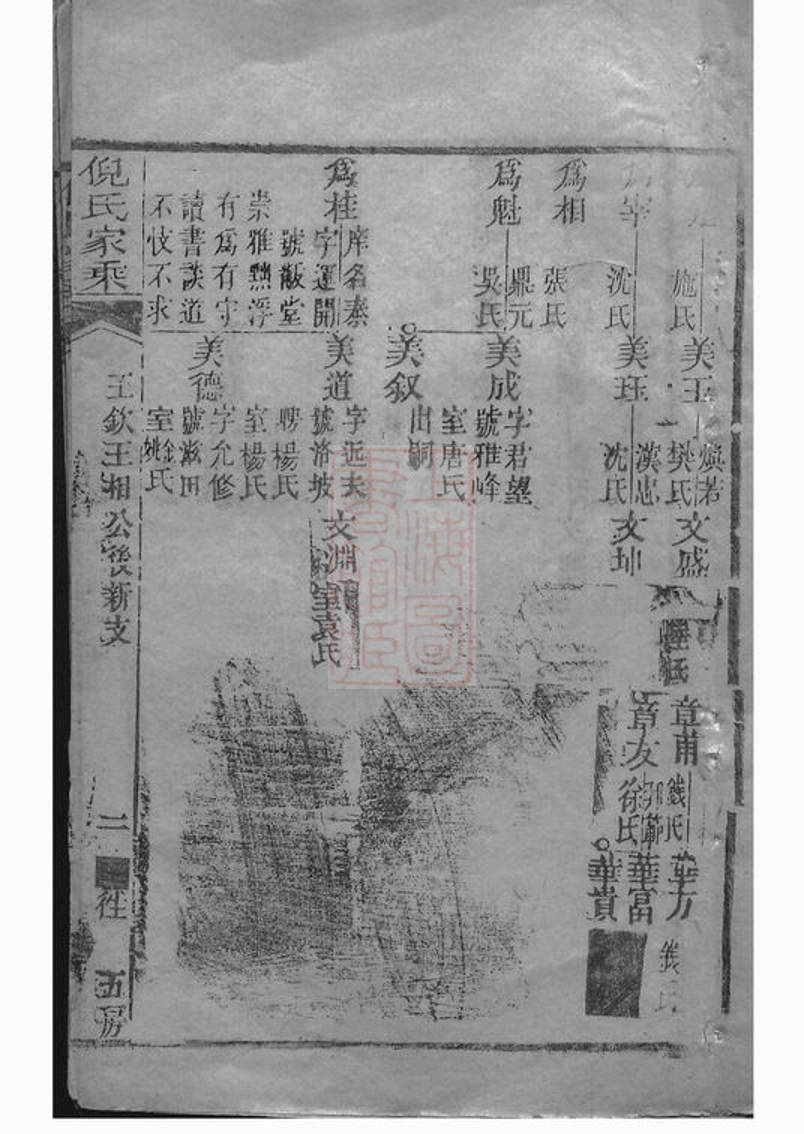 施氏
沈氏
爲相
張氏
爲魁
鼎元
吳氏
爲桂
庠名泰
字運開
號散堂
崇雅黜浮
有爲有守
讀書談道
不忮不求
美玉
煥若
樊氏
美珏
漢忠
沈氏
美成
字君望
號雅峰
室唐氏
美叙
出嗣
美道
字近夫
號洛坡
聘楊氏
室楊氏
美德
字允修
號滋田
室姚氏
文盛
文坤
文淵
室袁氏
章甫
錢氏
章友
徐氏
華方
錢氏
華富
華貴
倪氏家乘
王欽王相公後新支
二
五房
上海圖書館藏